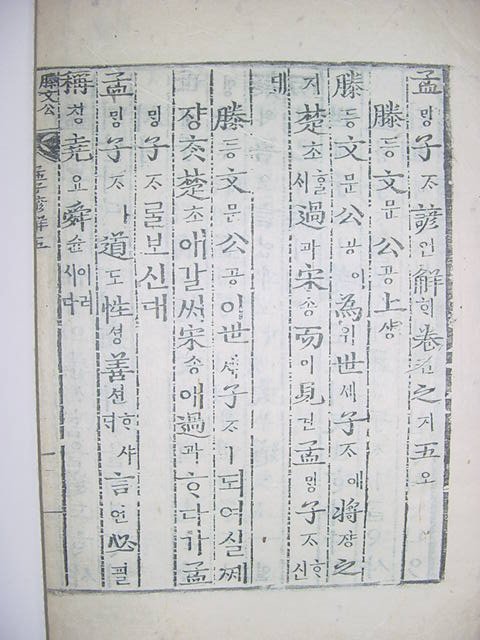 孟밍子ᄌᆞ諺언解ᄒᆡ卷권之지五오
滕등文문公공上샹
滕등文문公공이為위世셰子ᄌᆞ에將쟝之
지楚초ᄒᆞᆯ셰過과宋송而이見견孟밍子ᄌᆞᄒᆞ신
대
滕등文문公공이世셰子ᄌᆞㅣ되여실ᄶᅦ
쟝ᄎᆞᆺ楚초애갈ᄊᆡ宋송애過과ᄒᆞ다가孟
밍子ᄌᆞᄅᆞᆯ보신대
孟밍子ᄌᆞㅣ道도性셩善션ᄒᆞ샤ᄃᆡ言언必필
稱칭堯요舜슌이러시다
滕文公
孟子諺解五